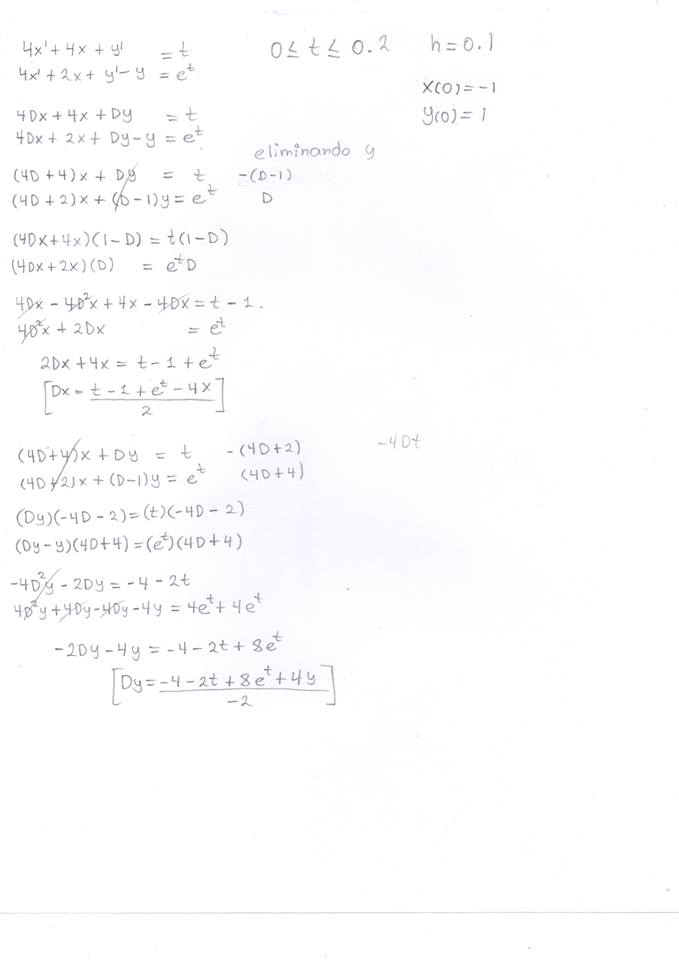 4x' + 4x + y' = t    0 ≤ t ≤ 0.2    h = 0.1
4x' + 2x + y' - y = e^t    x(0) = -1
4Dx + 4x + Dy = t    y(0) = 1
4Dx + 2x + Dy - y = e^t.
eliminando y
(4D + 4)x + Dy = t    -(D-1)
(4D + 2)x + (D-1)y = e^t    D
(4Dx + 4x)(1-D) = t(1-D)
(4Dx + 2x)(D) = e^t D
4Dx - 4D²x + 4x - 4Dx = t - 1.
4D²x + 2Dx = e^t
2Dx + 4x = t - 1 + e^t
[Dx = (t - 1 + e^t - 4x)/2]
(4D+4)x + Dy = t    -(4D+2)    -4Dt
(4D+2)x + (D-1)y = e^t    (4D+4)
(Dy)(-4D-2) = (t)(-4D-2)
(Dy-y)(4D+4) = (e^t)(4D+4)
-4D²y - 2Dy = -4 - 2t
4D²y + 4Dy - 4Dy - 4y = 4e^t + 4e^t
-2Dy - 4y = -4 - 2t + 8e^t
[Dy = (-4 - 2t + 8e^t + 4y)/-2]